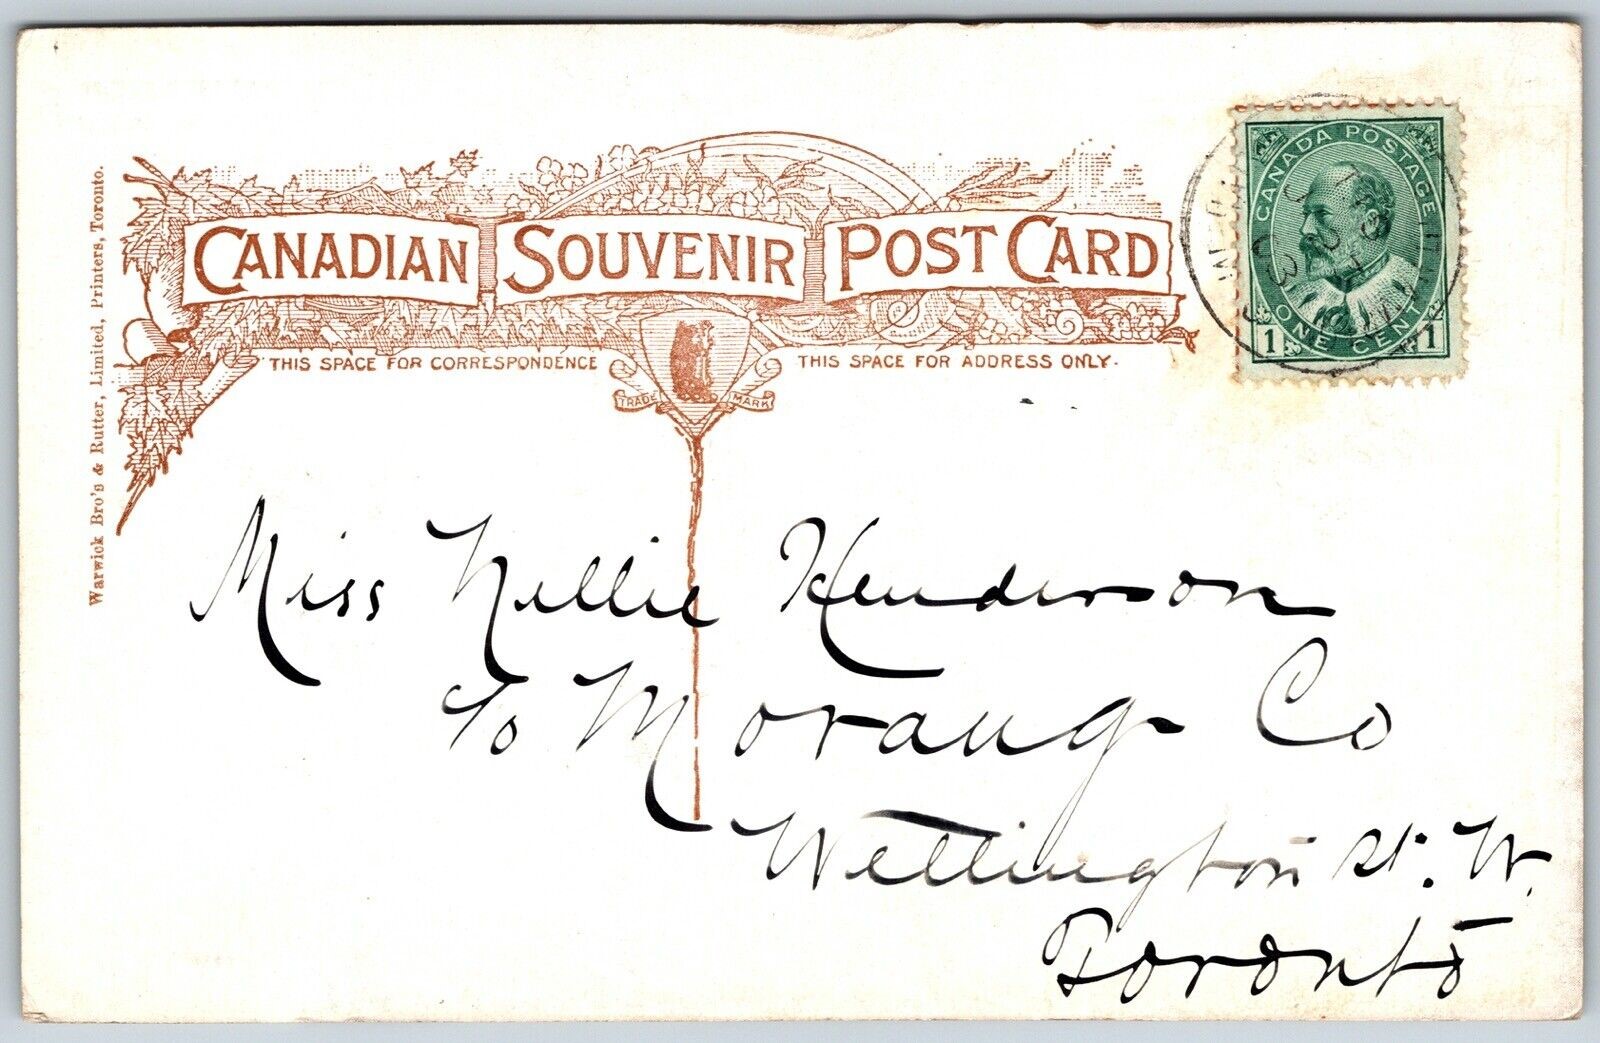 CANADIAN SOUVENIR POST CARD
THIS SPACE FOR CORRESPONDENCE
THIS SPACE FOR ADDRESS ONLY.
TRADE MARK
Warwick Bro's & Rutter, Limited, Printers, Toronto.
CANADA POSTAGE
1 ONE CENT 1
Miss Nellie Henderson
c/o Morang Co
Wellington St. W.
Toronto